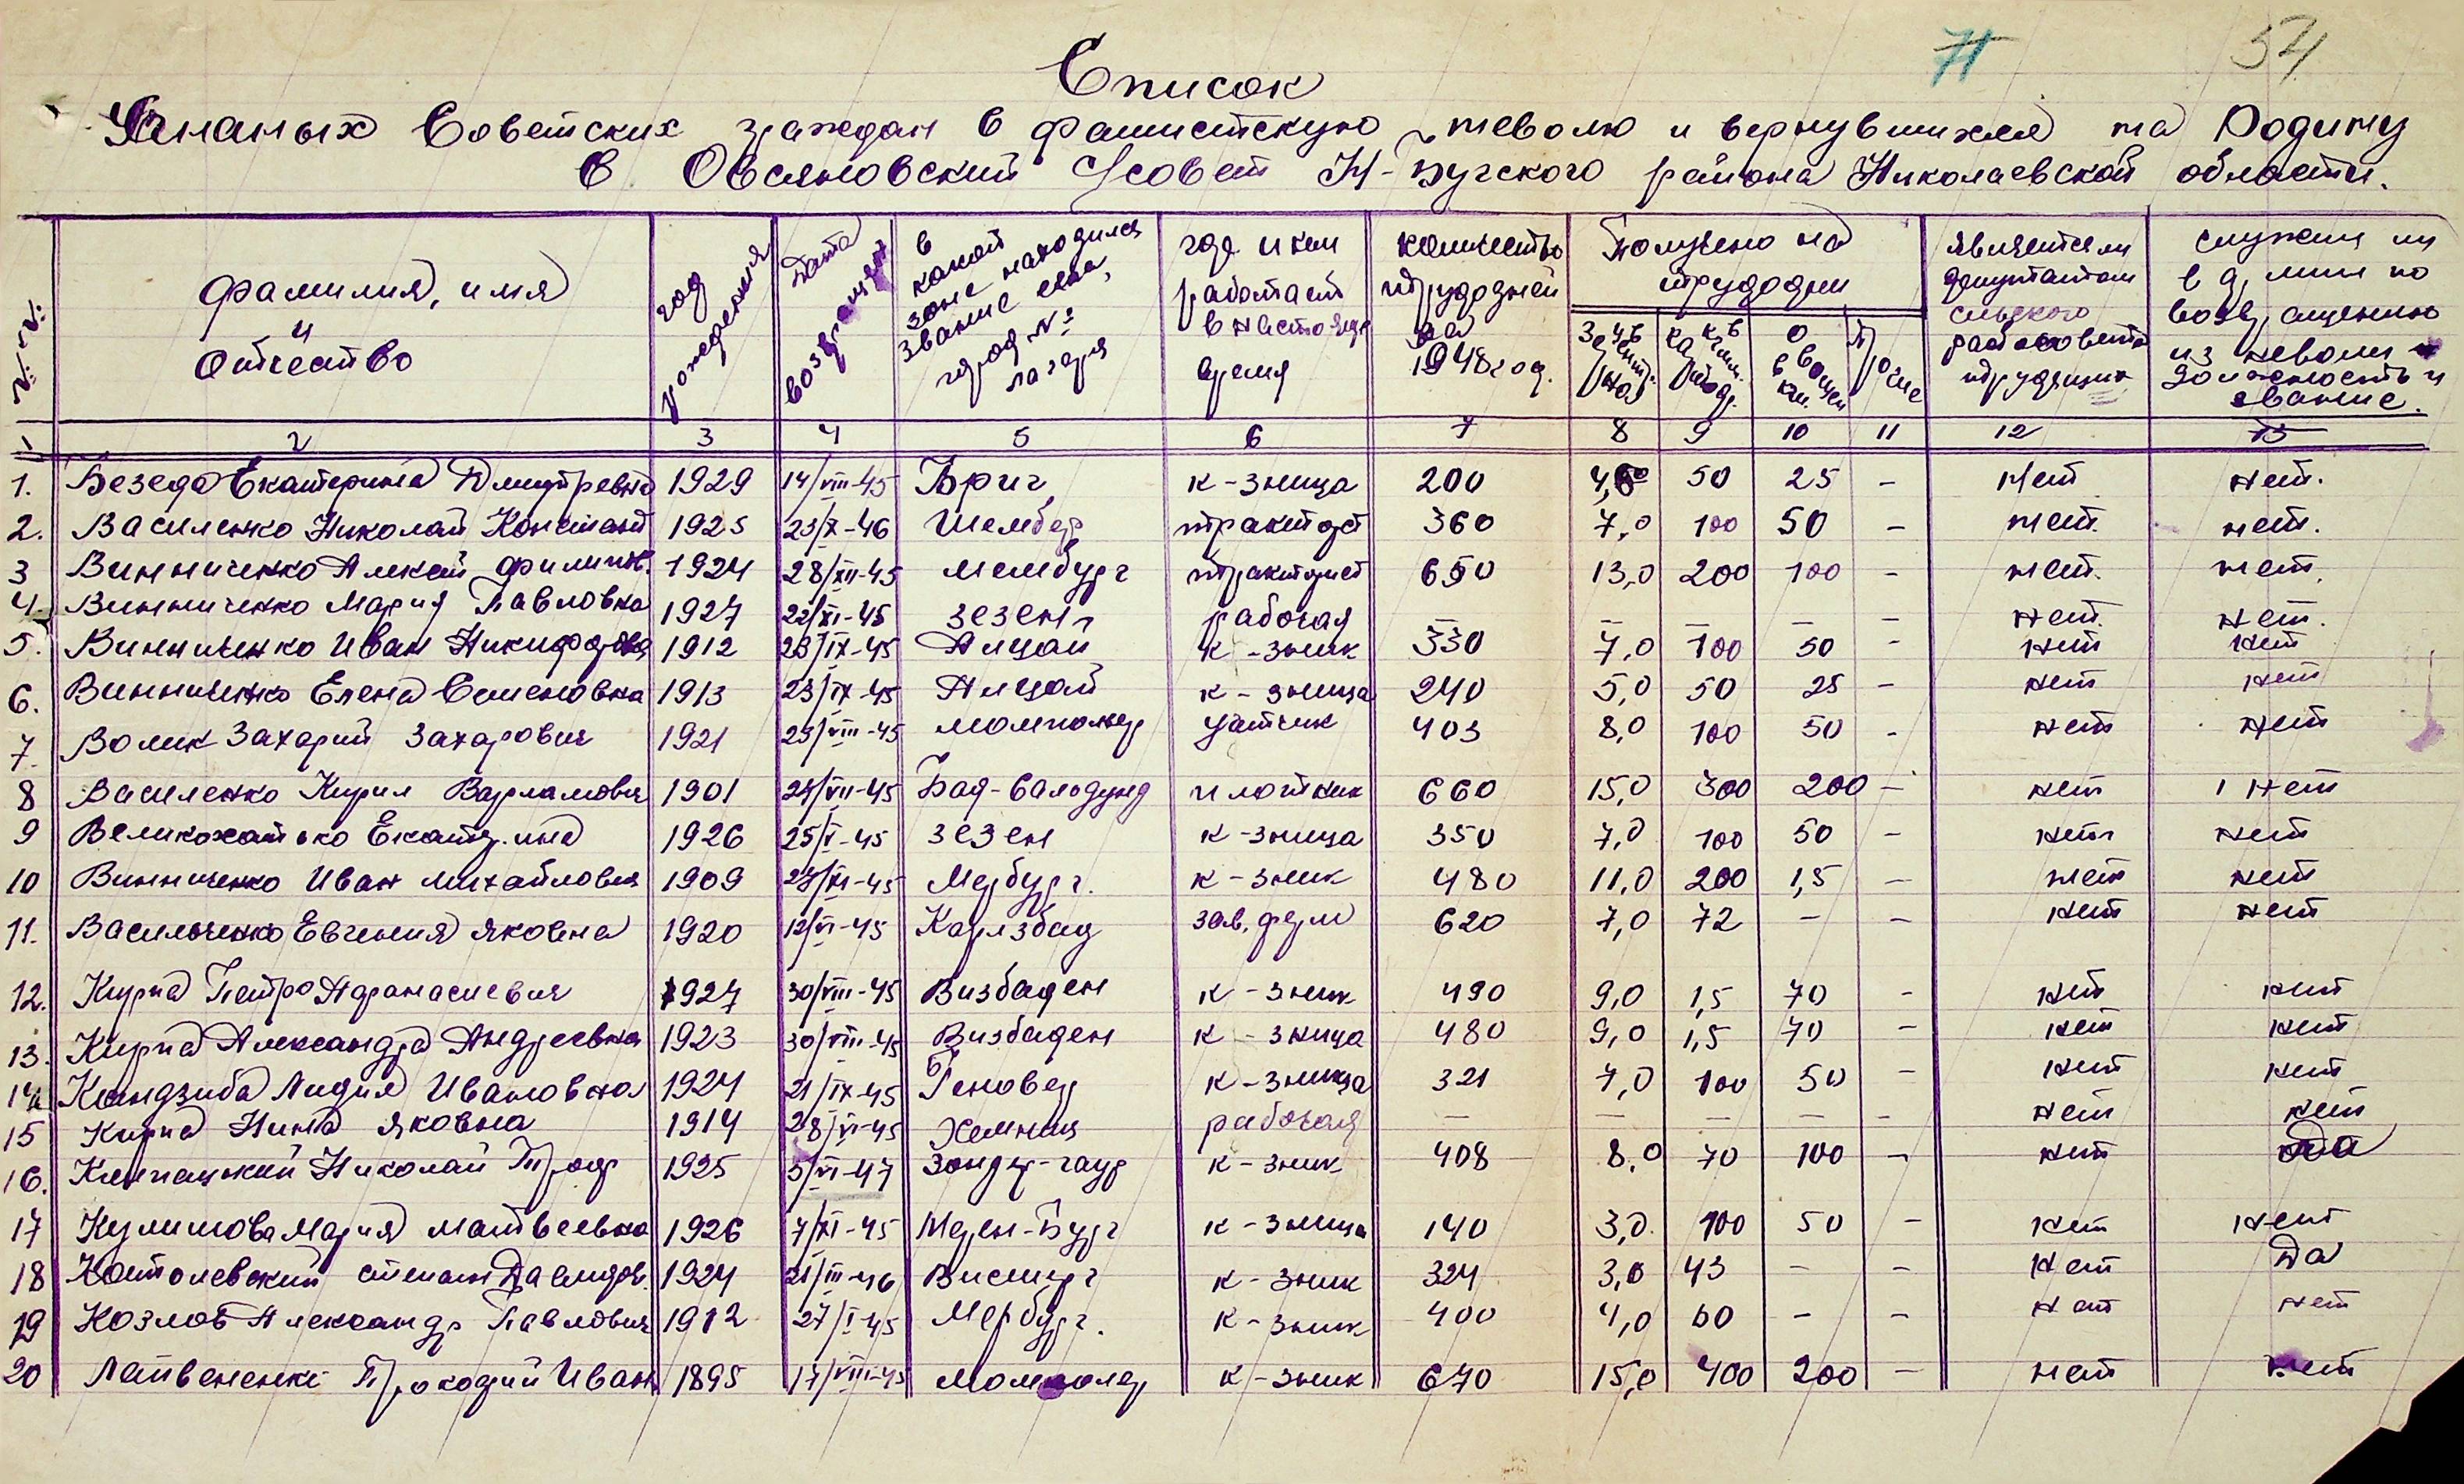 71 54
Список
Угнаных Советских граждан в фашистскую неволю и вернувшихся на Родину
в Овсяновский с/совет Н-Бугского района Николаевской области.
№ №
фамилия, имя и отчество
год рождения
Дата возвращен
в какой зоне находился звание села, город № лагеря
где и кем работает в настояще время
количество трудодней за 1948 год.
Получено на трудодни
зерна
о в овощей кгл.
Прочие
является ли депутатом сельского райсовета трудящих
служил ли в армии по возвращению из неволи должность и звание.
1 2 3 4 5 6 7 8 9 10 11 12 13
1. Безеда Екатерина Дмитревна 1929 14/VIII-45 Бриг к-зница 200 50 25 - Нет нет.
2. Василенко Николай Констант 1925 23/X-46 Шембер тракторст 360 7,0 100 50 - нет. нет.
3 Винниченко Алексей филипп. 1924 28/XII-45 Мембург тракторист 650 13,0 200 100 - нет. нет.
4. Винниченко Мария Павловна 1927 22/XI-45 Зезен рабочая — — — — — нет. нет.
5. Винниченко Иван Никифорович 1912 23/IX-45 Алцай к-зник 330 7,0 100 50 - нет нет
6. Винниченко Елена Семеновна 1913 23/IX-45 Алцай к-зница 240 5,0 50 25 - нет нет
7. Волик Захарий Захарович 1921 25/VIII-45 учотчик 403 8,0 100 50 - нет нет
8 Василенко Кирил Варламович 1901 24/VII-45 плотник 660 15,0 300 200 - нет нет
9 Великохатько Екатерина 1926 25/V-45 Зезен к-зница 350 7,0 100 50 - нет нет
10 Винниченко Иван Михайлович 1909 Мербург. к-зник 480 11,0 200 1,5 - нет нет
11. Василченко Евгения Яковна 1920 12/VI-45 Карлзбад зав. ферм 620 7,0 72 - - нет нет
12. Курпа Петро Афанасиевич 1927 30/VIII-45 Визбаден к-зник 490 9,0 1,5 70 - нет нет
13. Курпа Александра Андреевна 1923 30/VIII-45 Визбаден к-зница 480 9,0 1,5 70 - нет нет
14 Кандзюба Лидия Ивановна 1924 21/IX-45 Геновер к-зница 321 7,0 100 50 - нет нет
15 Курпа Нина Яковна 1914 28/VI-45 Хемниц рабочая — — — — - нет нет
16. Николай Троф 1925 3/VI-47 Зондер-гаур к-зник 408 8,0 70 100 - нет Да
17 Кулишова Мария Матвеевна 1926 7/XI-45 Мерен-Бург к-зница 140 3,0 100 50 - нет нет
18 Костолевский степан Давидов. 1924 21/III-46 Висмург к-зник 324 3,0 43 - - Нет Да
19 Козлов Александр Павлович 1912 27/I-45 Мербург. к-зник 400 4,0 60 - - нет нет
20 Прокофий Иван 1895 17/VIII-45 к-зник 670 15,0 400 200 - нет нет